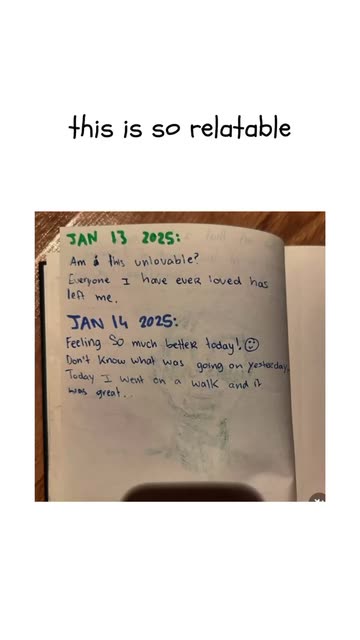 this is so relatable
JAN 13 2025:
Am I this unlovable?
Everyone I have ever loved has
left me.
JAN 14 2025:
Feeling SO much better today! ☺
Don't know what was going on yesterday.
Today I went on a walk and it
was great..